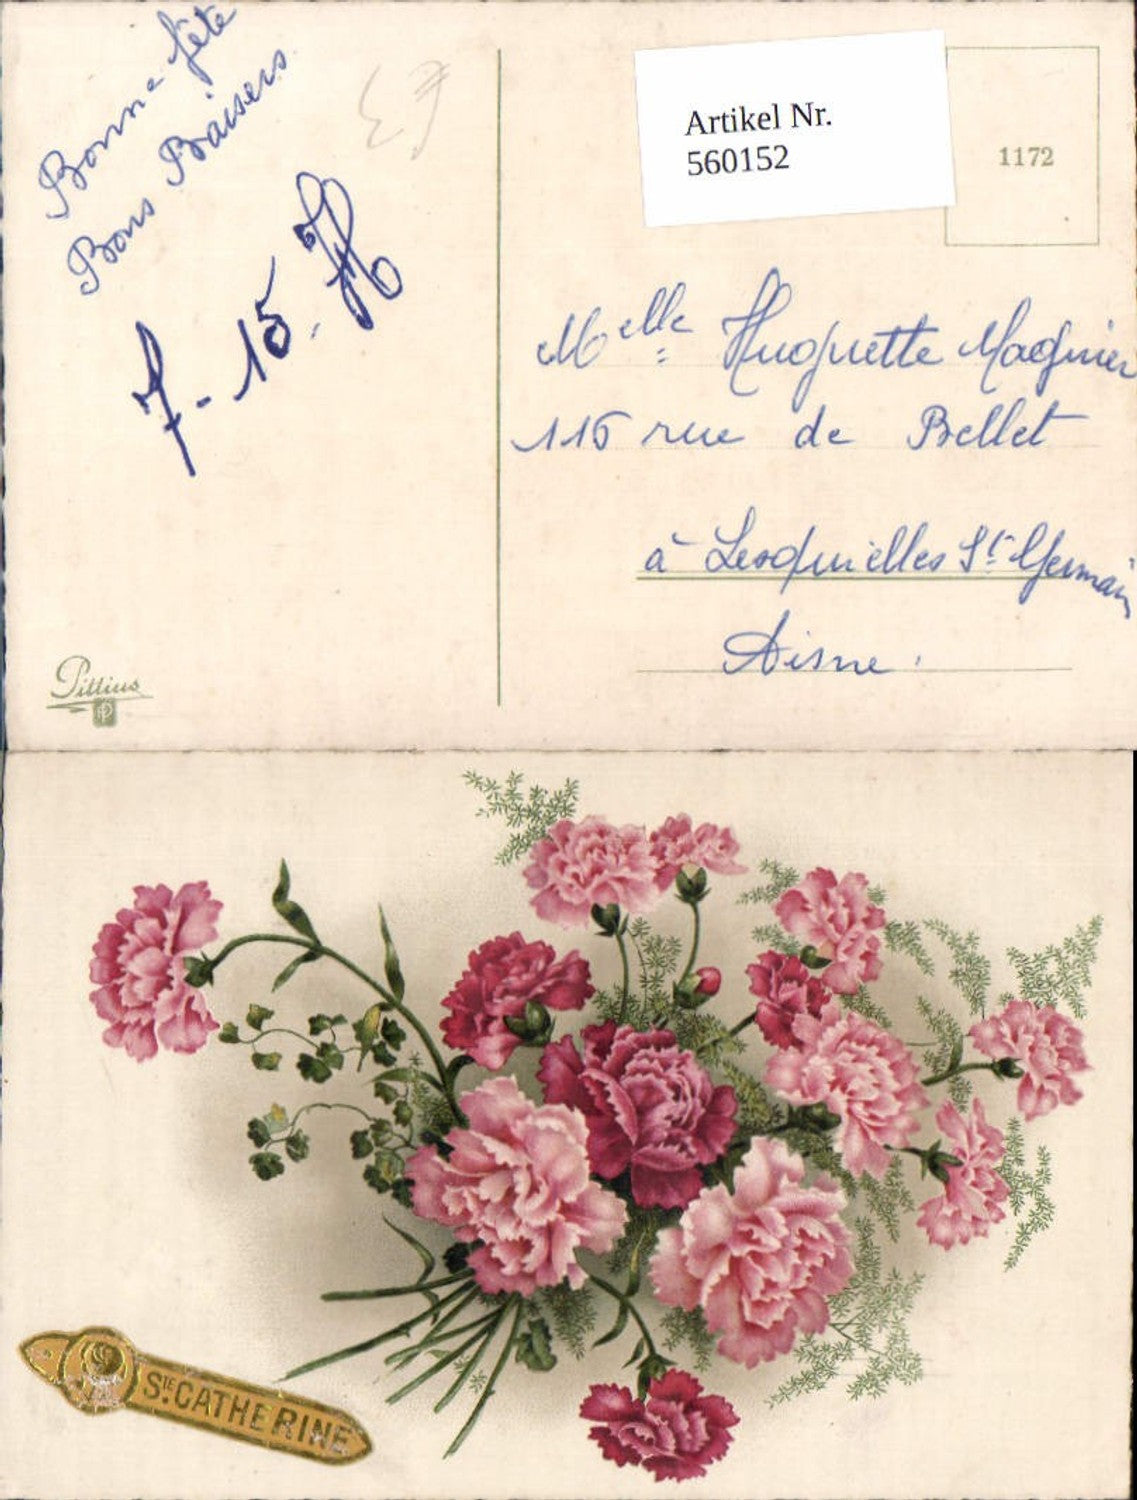 Bonne fête
Bons Baisers
Artikel Nr.
560152
1172
Melle Huguette Magnier
115 rue de Bellet
à Lesquielles St Germain
Aisne.
Pittius
Ste CATHERINE